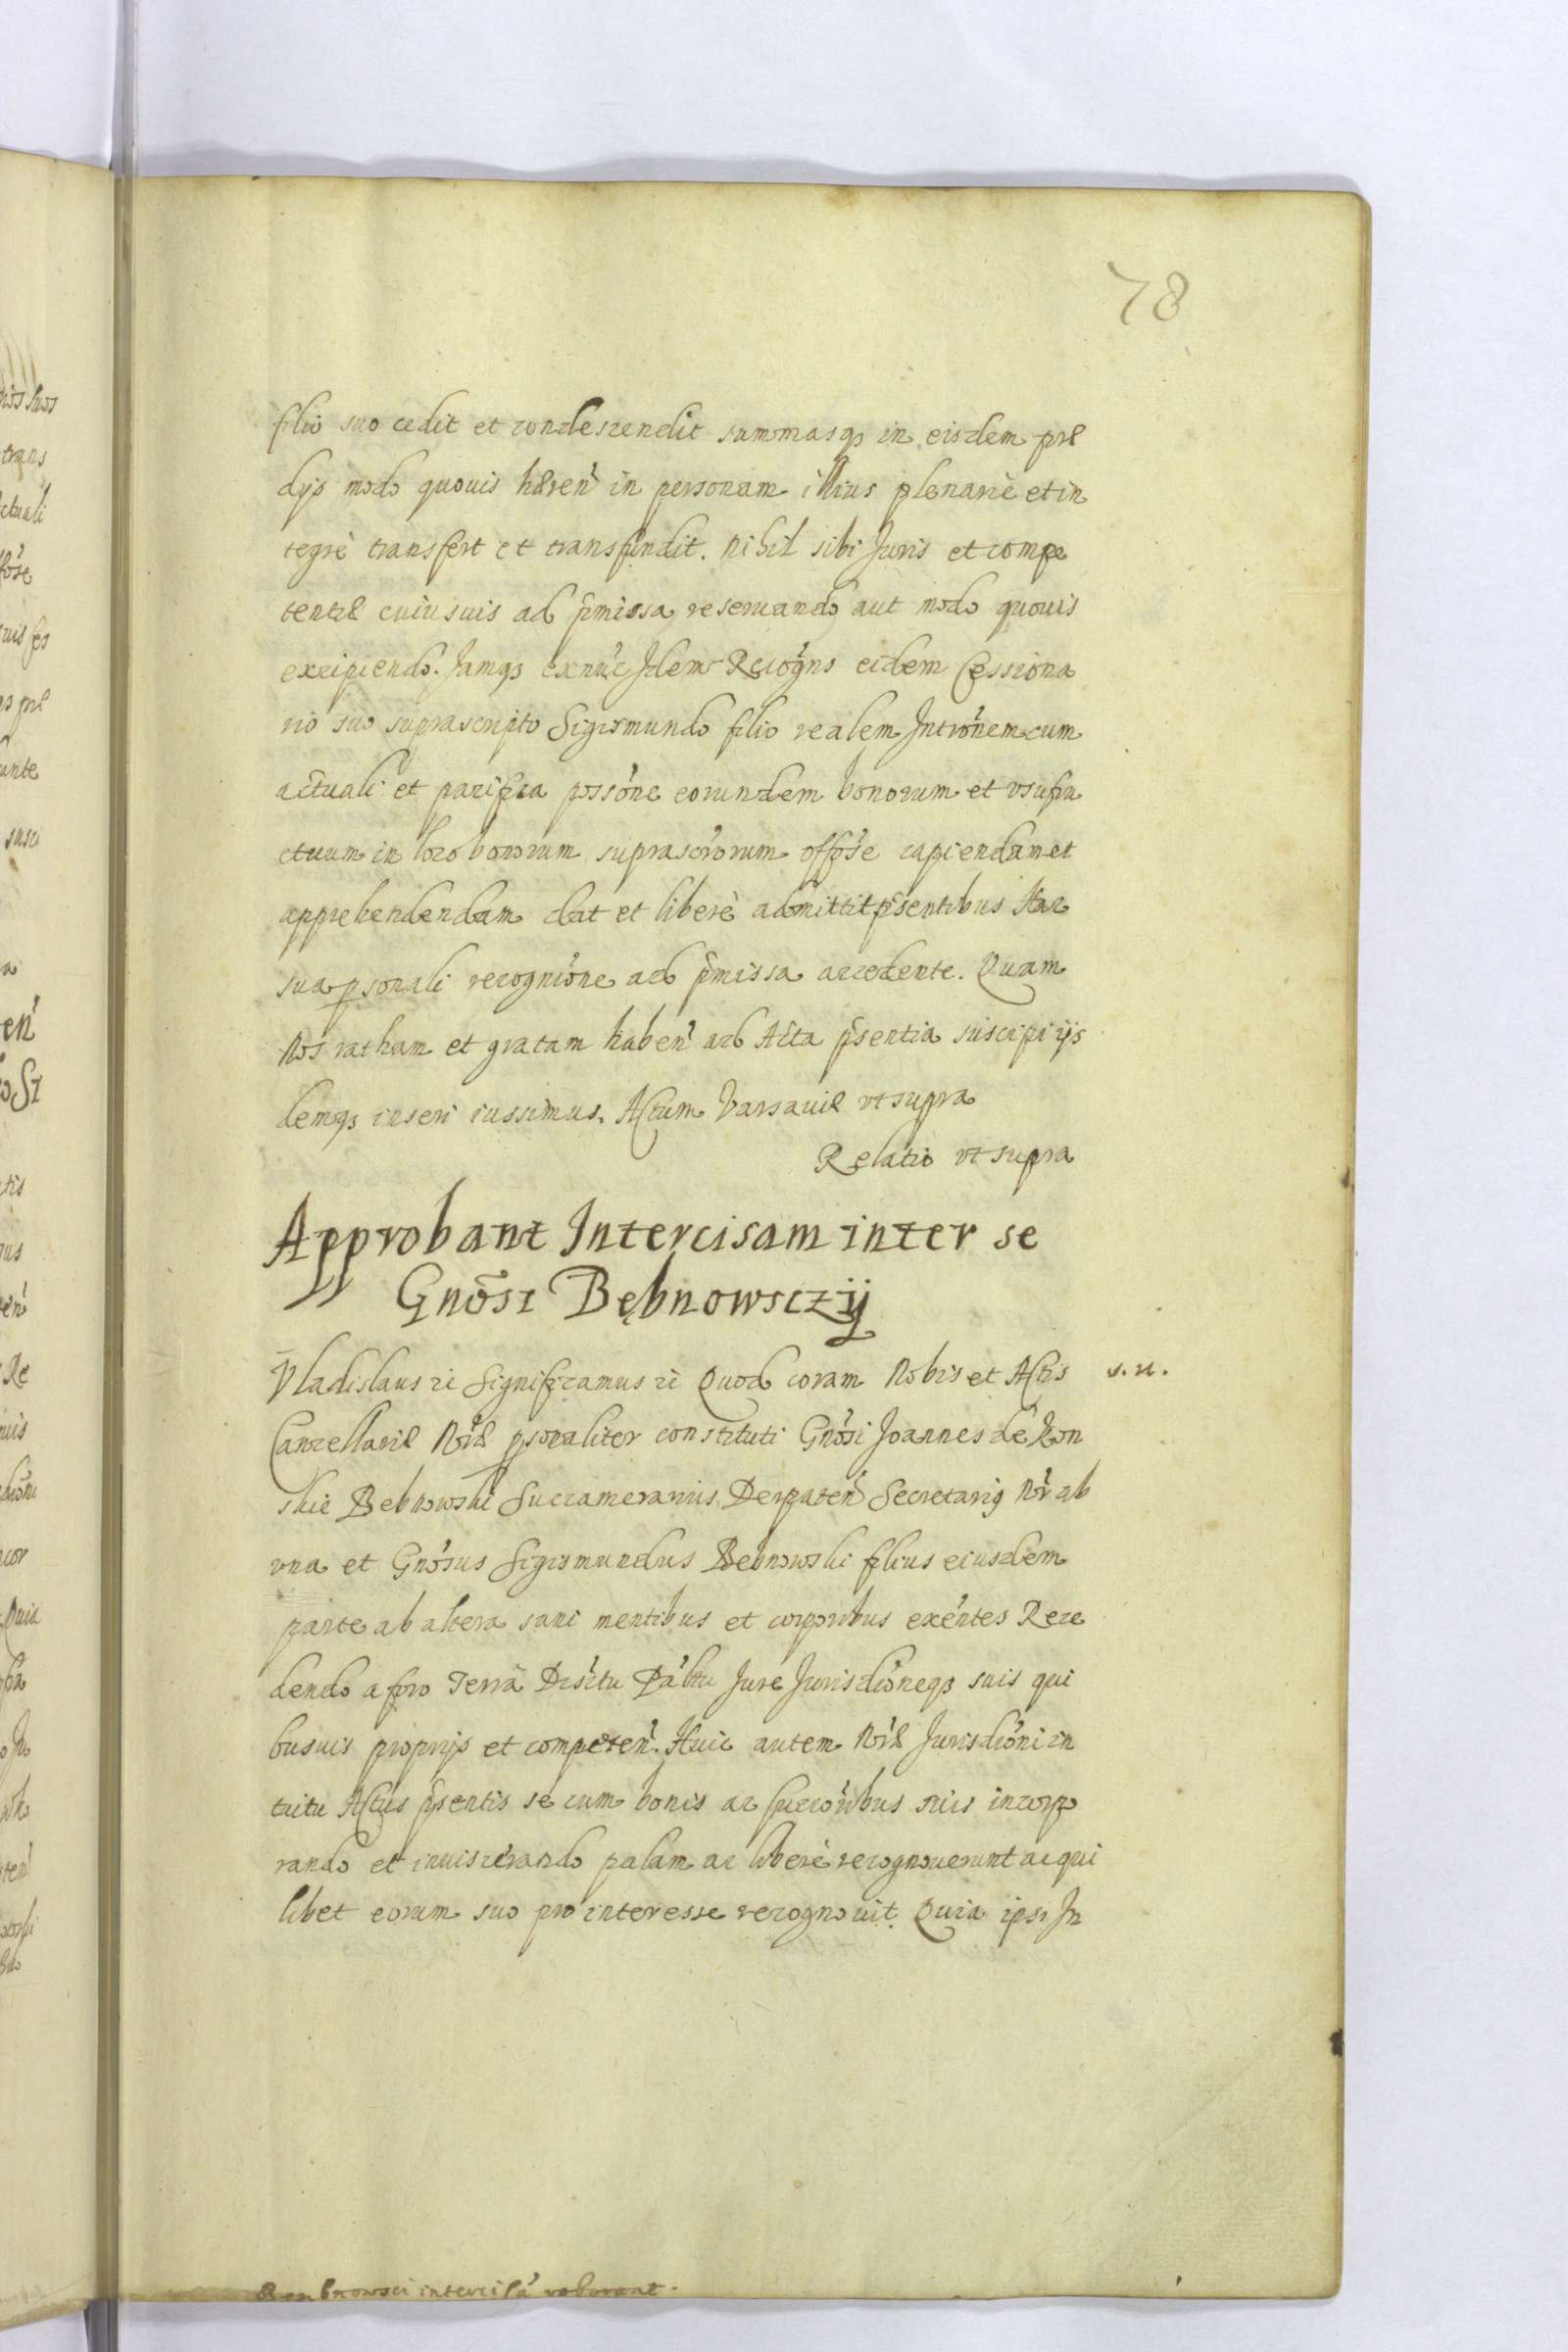 78
filio suo cedit et condescendit summasqꝫ in eisdem præ
dijs modo quouis hæren̉ in personam illius plenariè et in
tegrè transfert et transfundit. nihil sibi Juris et compe
tentiæ cuiusuis ad p̃missa reseruando aut modo quouis
excipiendo. Jamqꝫ exnūc Idem Recog̃ns eidem Cessiona
rio suo suprascripto Sigismundo filio realem Intrõnem cum
actuali et pacifica possõne eorundem bonorum et vsufru
ctuum in loco bonorum suprascr̃orum offõse capiendam et
apprehendendam dat et liberè admittit p̃sentibus Hac
sua ꝑsonali recogniõne ad p̃missa accedente. Quam
Nos ratham et gratam haben̉ ad Acta p̃sentia suscipi ijs
demqꝫ inseri iussimus. Actum Varsauiæ vt supra
Relatio vt supra
Approbant Intercisam inter se
Gnõsi Bębnowsczÿ
Vladislaus ec̀ Significamus ec̀ Quod coram Nobis et Actis s. n.
Cancellariæ Nr̃æ ꝑsonaliter constituti Gnõsi Joannes de Kon
skie Bebnowski Succamerarius Derpaten̉ Secretariꝰ Nr̃ ab
vna et Gnõsus Sigismundus Bebnowski filius eiusdem
parte ab altera sani mentibus et corporibus exẽntes Rece
dendo a foro Terrã Disc̃tu Pãltu Jure Jurisdiõneqꝫ suis qui
busuis proprijs et competen̉. Huic autem Nr̃æ Jurisdiõni in
tuitu Actus p̃sentis se cum bonis ac succõribus suis incorpo
rando et inuiscerando palàm ac liberè recognouerunt ac qui
libet eorum suo pro interesse recognouit. Quia ipsi In
Bembnowsci intercisã roborant.